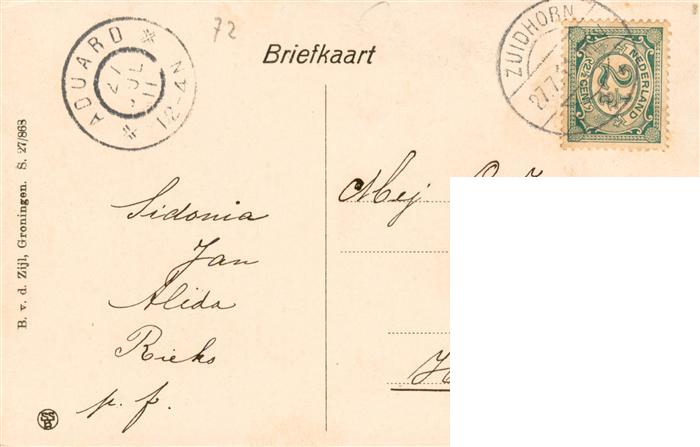 72
ADUARD
27 JUL 11
12-4 N
Briefkaart
ZUIDHORN
27.7.
NEDERLAND
2½
2½ CENT
Mej.
Sidonia
Jan
Alida
Rieks
p. f.
B. v. d. Zijl, Groningen. S. 27/868